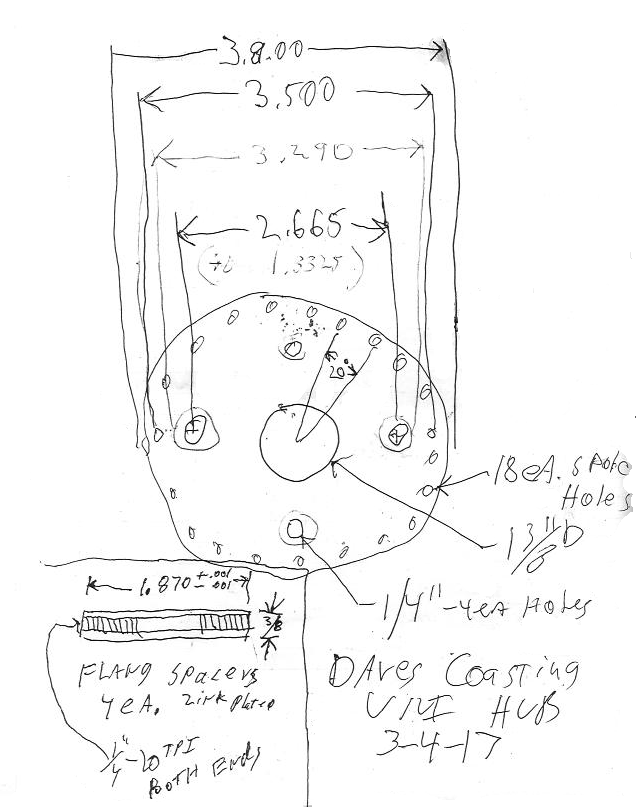 3.8.00
3.500
3.290
2.665
1.3325
20°
18 eA. spoke
Holes
1 3/8"D
1/4"-4eA Holes
1.870 +.001 -.001
3/8
FLANG Spacers
4 eA. zink Plated
1/4"-20 TPI
BOTH Ends
DAves Coasting
UNI HUB
3-4-17